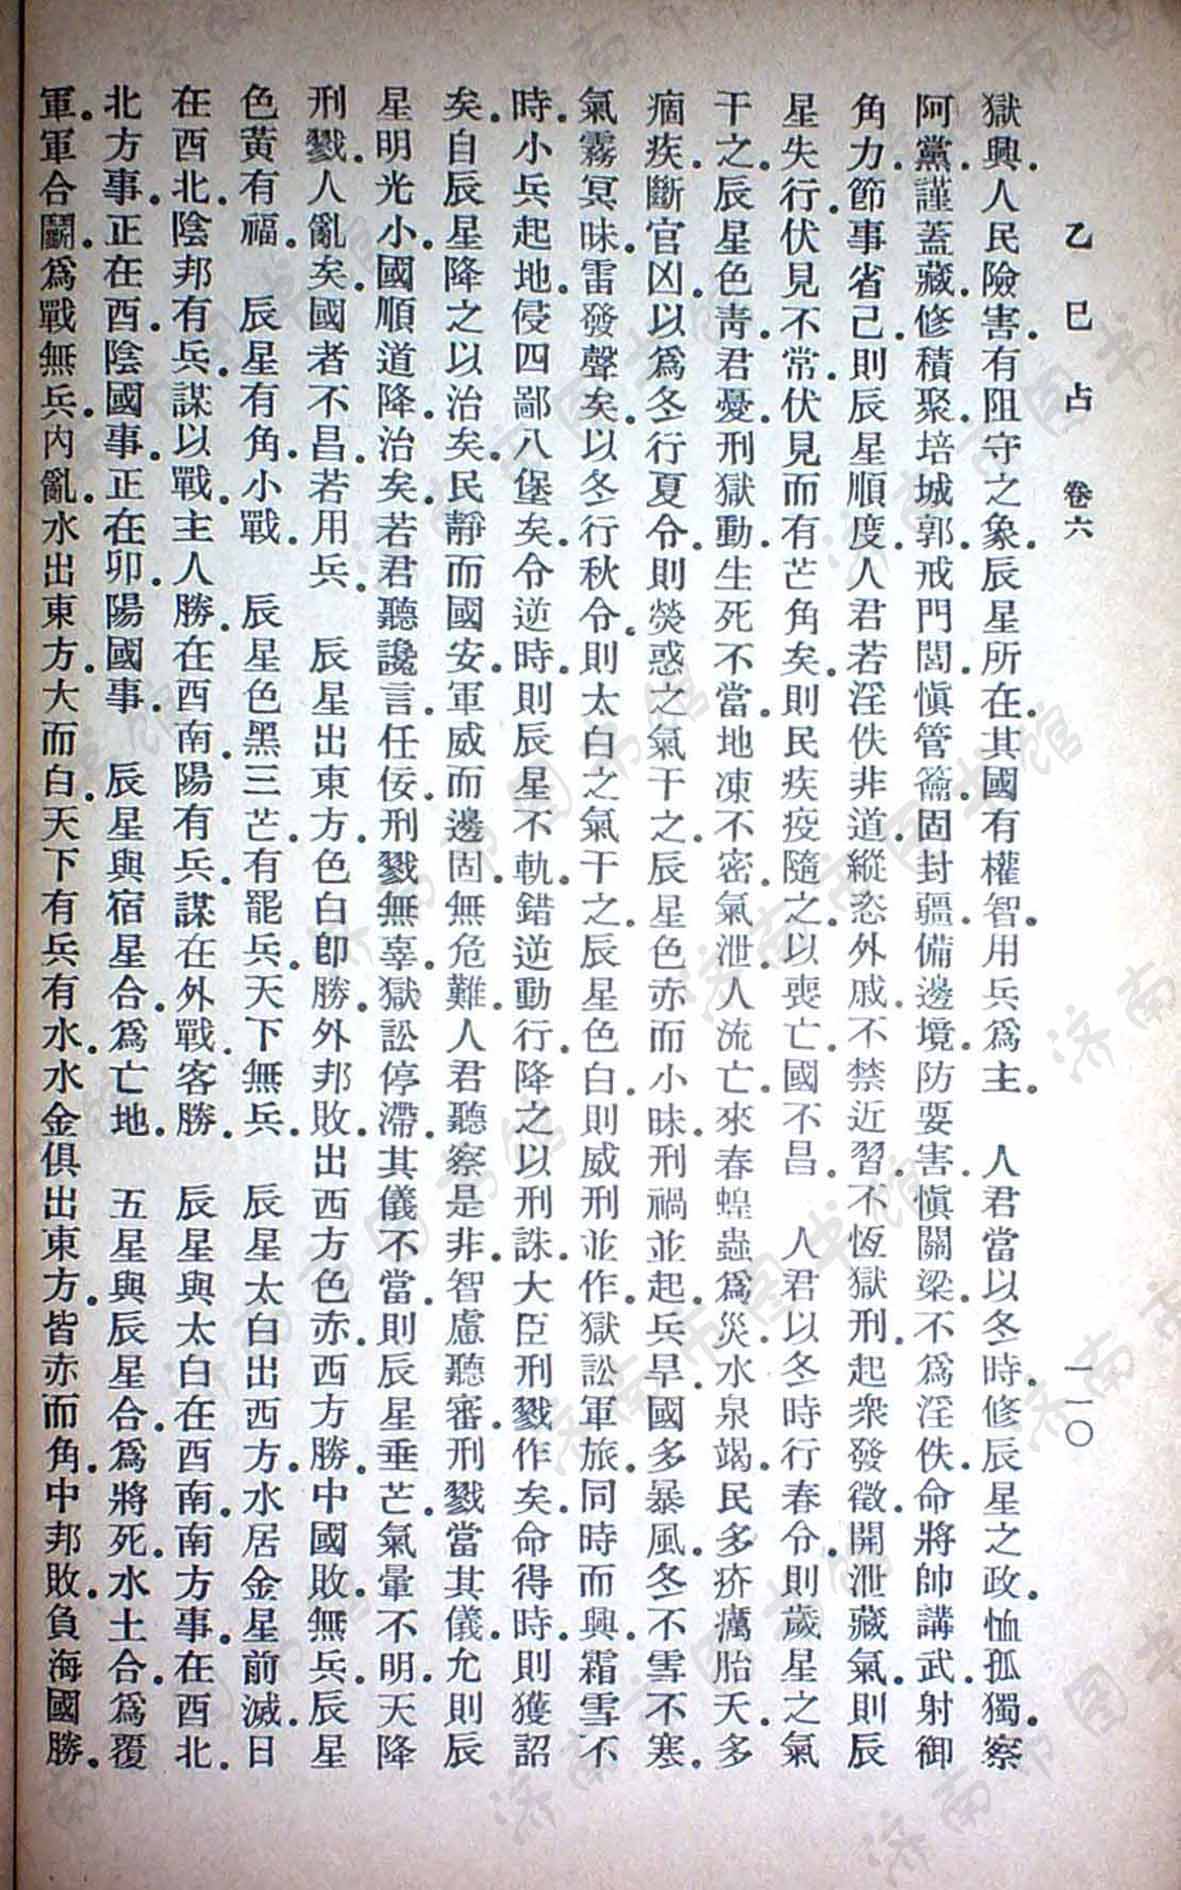 乙巳占　卷六　一一〇
獄興。人民險害。有阻守之象。辰星所在。其國有權智。用兵爲主。　人君當以冬時。修辰星之政。恤孤獨。察
阿黨。謹蓋藏。修積聚。培城郭。戒門閭。愼管籥。固封疆。備邊境。防要害。愼關梁。不爲淫佚。命將帥講武。射御
角力。節事省己。則辰星順度。人君若淫佚非道。縱恣外戚。不禁近習。不恆獄刑。起衆發徵。開泄藏氣。則辰
星失行。伏見不常。伏見而有芒角矣。則民疾疫隨之。以喪亡。國不昌。　人君以冬時行春令。則歲星之氣
干之。辰星色靑。君憂。刑獄動。生死不當。地凍不密。氣泄。人流亡。來春蝗蟲爲災。水泉竭。民多疥癘。胎夭。多
痼疾。斷官凶。以爲冬行夏令。則熒惑之氣干之。辰星色亦而小昧。刑禍並起。兵旱。國多暴風。冬不雪不寒。
氣霧冥昧。雷發聲矣。以冬行秋令。則太白之氣干之。辰星色白。則威刑並作。獄訟軍旅。同時而興。霜雪不
時。小兵起地。侵四鄙八堡矣。令逆時。則辰星不軌。錯逆動行。降之以刑誅。大臣刑戮作矣。命得時。則獲詔
矣。自辰星降之以治矣。民靜而國安。軍威而邊固。無危難。人君聽察是非。智慮聽審。刑戮當其儀。允則辰
星明光小。國順道降。治矣。若君聽讒言。任佞。刑戮無辜。獄訟停滯。其儀不當。則辰星垂芒。氣暈不明。天降
刑戮。人亂矣。國者不昌。若用兵。　辰星出東方。色白卽勝。外邦敗。出西方色赤。西方勝。中國敗。無兵。辰星
色黃有福。　辰星有角。小戰。　辰星色黑三芒。有罷兵。天下無兵。　辰星太白出西方。水居金星前滅。日
在西北。陰邦有兵。謀以戰。主人勝。在西南。陽有兵。謀在外戰。客勝。　辰星與太白在西南。南方事。在西北。
北方事。正在酉。陰國事。正在卯。陽國事。　辰星與宿星合。爲亡地。　五星與辰星合。爲將死。水土合。爲覆
軍。軍合鬭。爲戰無兵。內亂。水出東方。大而白。天下有兵有水。水金俱出東方。皆赤而角。中邦敗。負海國勝。